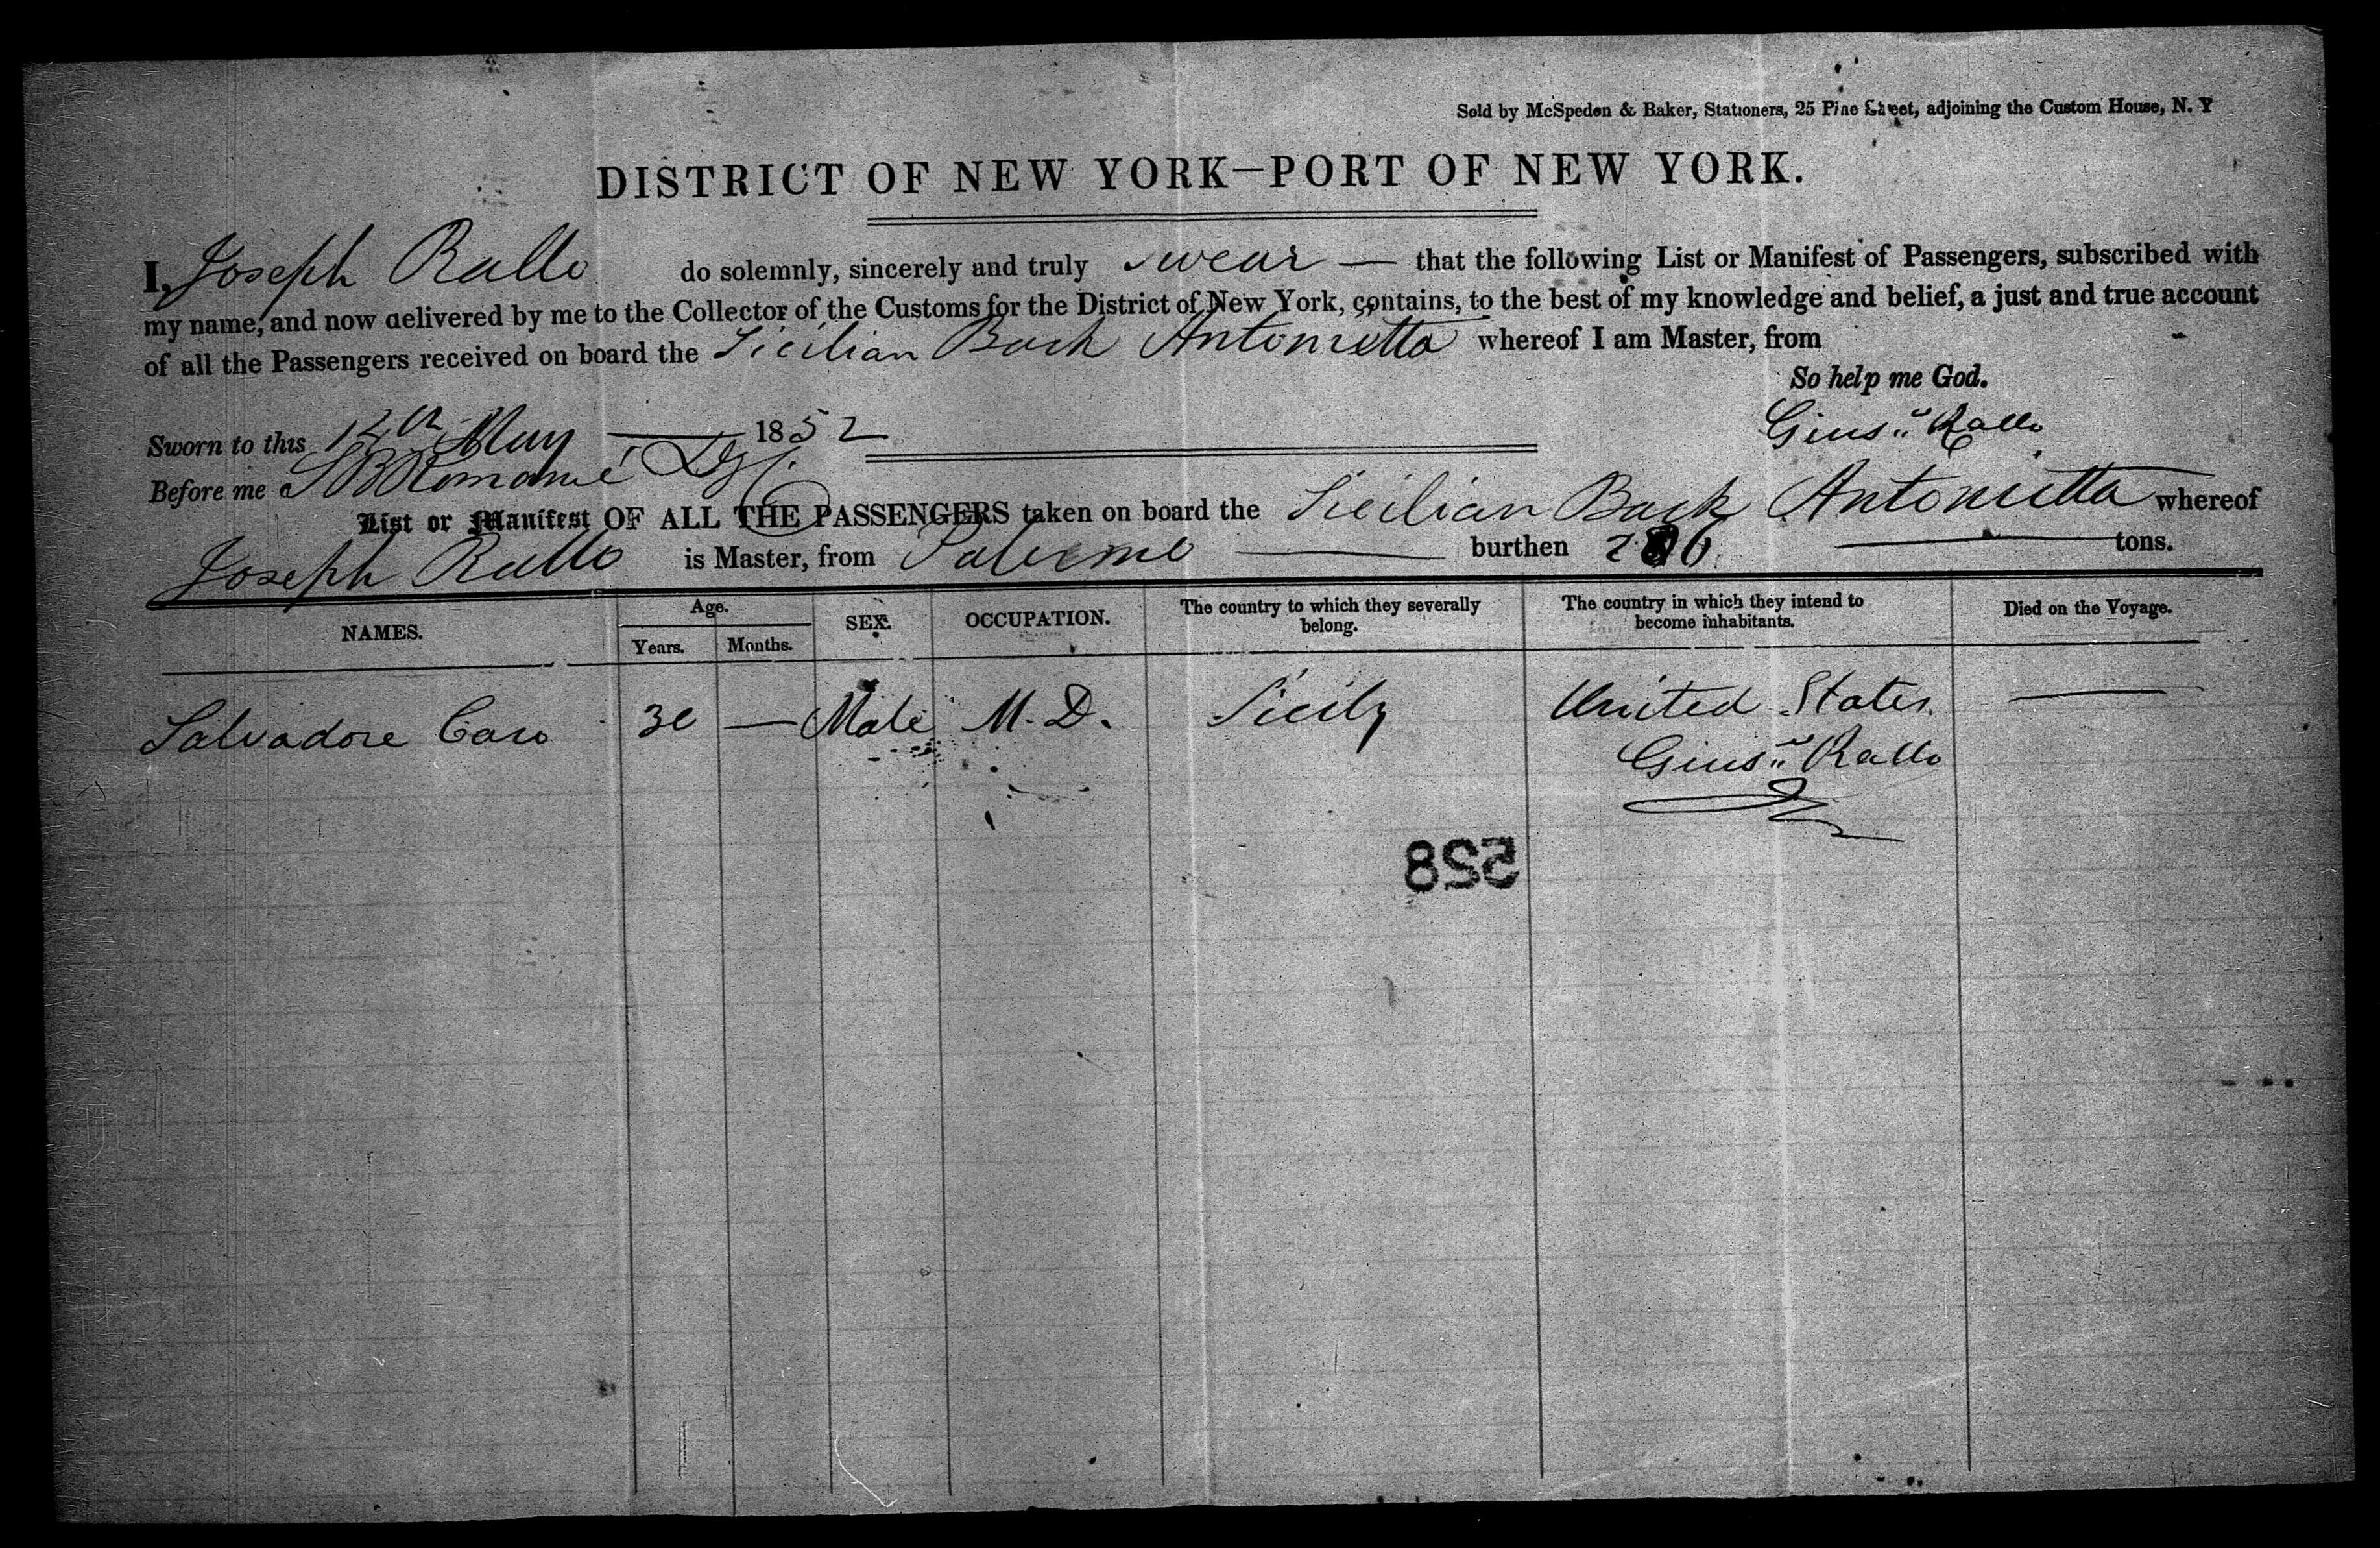 Sold by McSpedon & Baker, Stationers, 25 Pine Street, adjoining the Custom House, N. Y
DISTRICT OF NEW YORK—PORT OF NEW YORK.
I, Joseph Rallo do solemnly, sincerely and truly swear — that the following List or Manifest of Passengers, subscribed with
my name, and now delivered by me to the Collector of the Customs for the District of New York, contains, to the best of my knowledge and belief, a just and true account
of all the Passengers received on board the Sicilian Bark Antonietta whereof I am Master, from
So help me God.
Sworn to this 12th May 1852
Gius.e Rallo
Before me
List or Manifest OF ALL THE PASSENGERS taken on board the Sicilian Bark Antonietta whereof
Joseph Rallo is Master, from Palermo — burthen tons.
NAMES. Age. Years. Months. SEX. OCCUPATION. The country to which they severally belong. The country in which they intend to become inhabitants. Died on the Voyage.
Salvadore Caro 30 — Male M. D. Sicily United States —
Gius.e Rallo
528